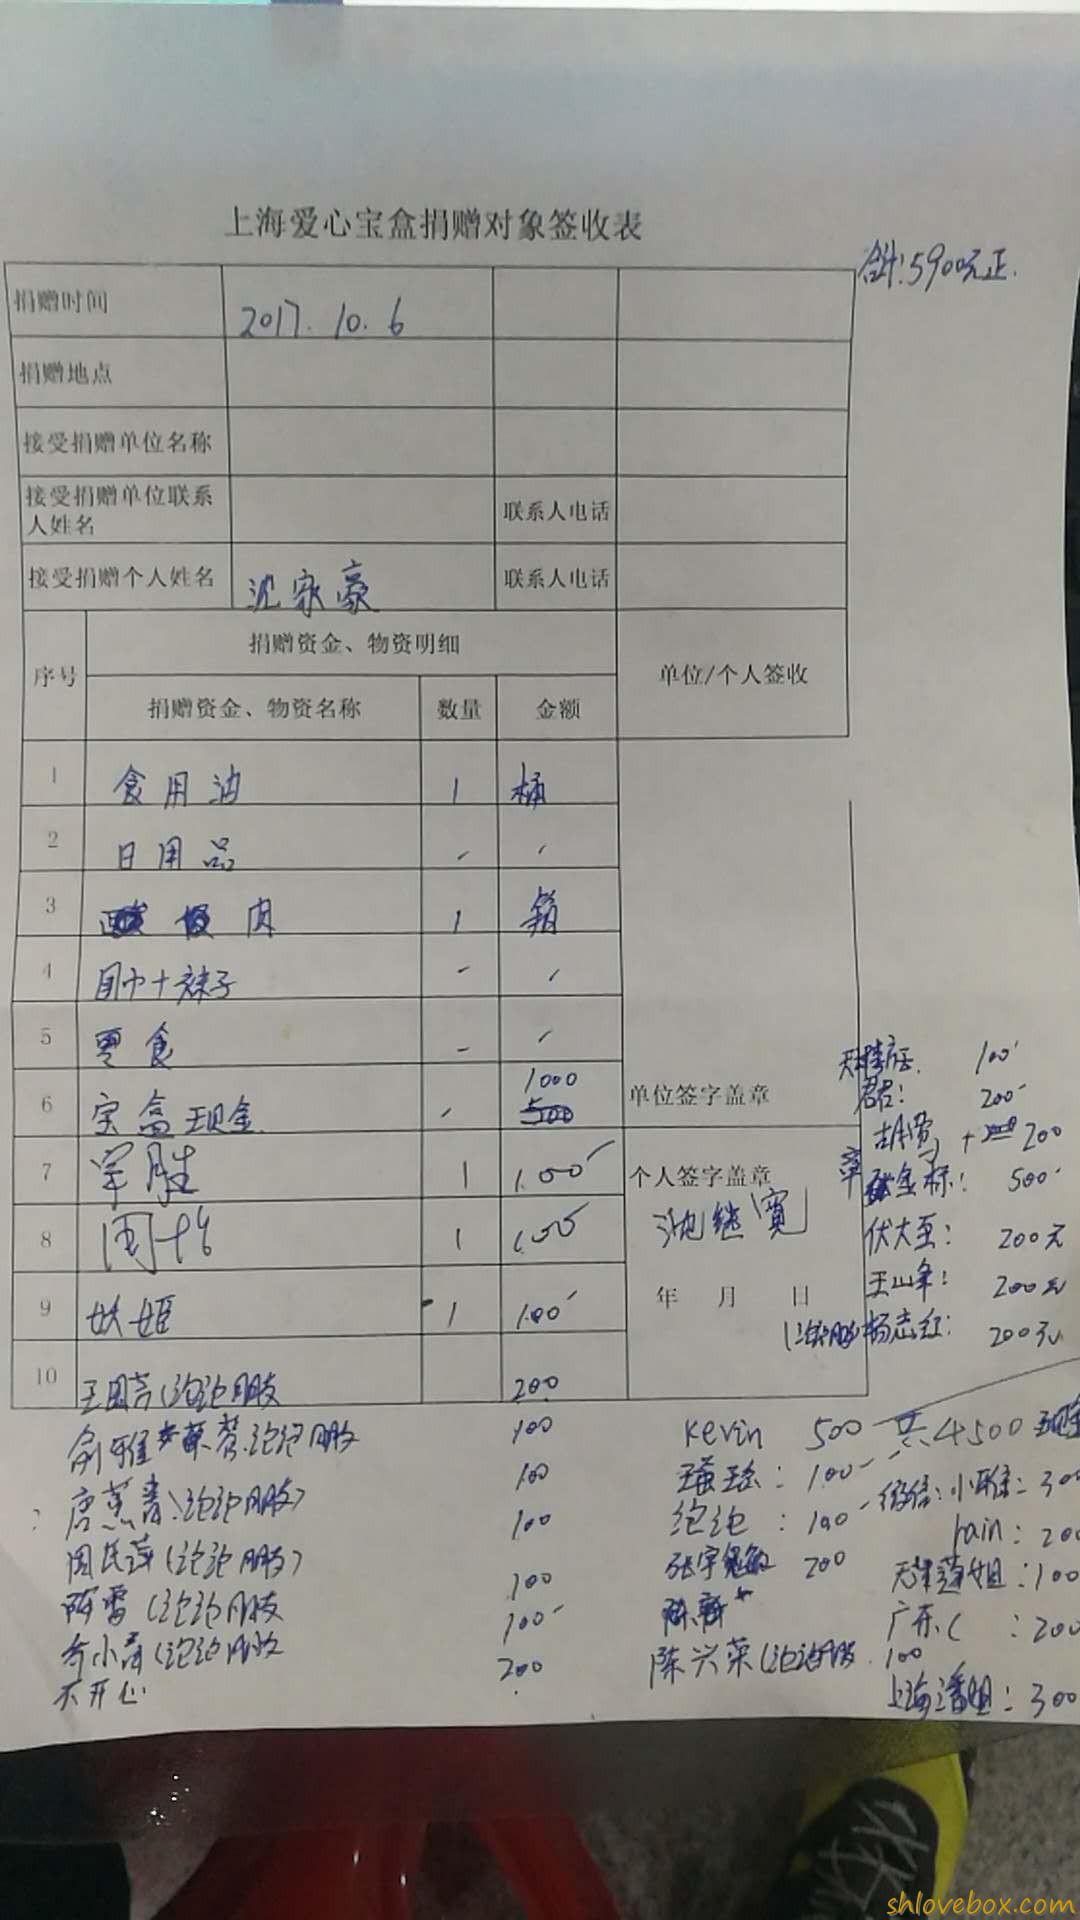 上海爱心宝盒捐赠对象签收表
合计:5900元正.
捐赠时间 2017.10.6
捐赠地点
接受捐赠单位名称
接受捐赠单位联系人姓名 联系人电话
接受捐赠个人姓名 沈家豪 联系人电话
序号 捐赠资金、物资明细 单位/个人签收
捐赠资金、物资名称 数量 金额
1 食用油 1 桶
2 日用品
3 肉 1 箱
4 围巾+袜子
5 零食
6 宝盒现金 1000 500 单位签字盖章
7 军胜 1 100 个人签字盖章
8 1 100
9 妖姬 1 100 年 月 日
10 王国芳(泡泡朋友 200
100
君君: 200
200
金标: 500
伏大至: 200元
王山峰: 200元
(泡泡朋友 杨志红: 200元
俞雅 泡泡朋友 100
唐蕙青(泡泡朋友) 100
周民萍(泡泡朋友) 100
陈雷(泡泡朋友 100
乔小青(泡泡朋友 100
不开心 200
Kevin 500 共4500现金
100
泡泡: 100
张宇 200
陈新
陈兴荣(泡泡朋友 100
微信:小雅: 300
rain: 200
天津莲姐: 100
广东 : 200
上海潘姐: 300
shlovebox.com